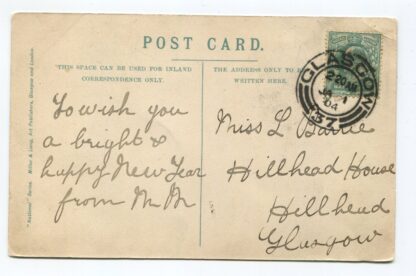 POST CARD.
THIS SPACE CAN BE USED FOR INLAND
CORRESPONDENCE ONLY.
THE ADDRESS ONLY TO
WRITTEN HERE.
GLASGOW
2 20 AM
JA 1
04
37
To wish you
a bright &
happy New Year
from M. M
Miss L Barrie
Hillhead House
Hillhead
Glasgow
"National" Series. Millar & Lang, Art Publishers, Glasgow and London.